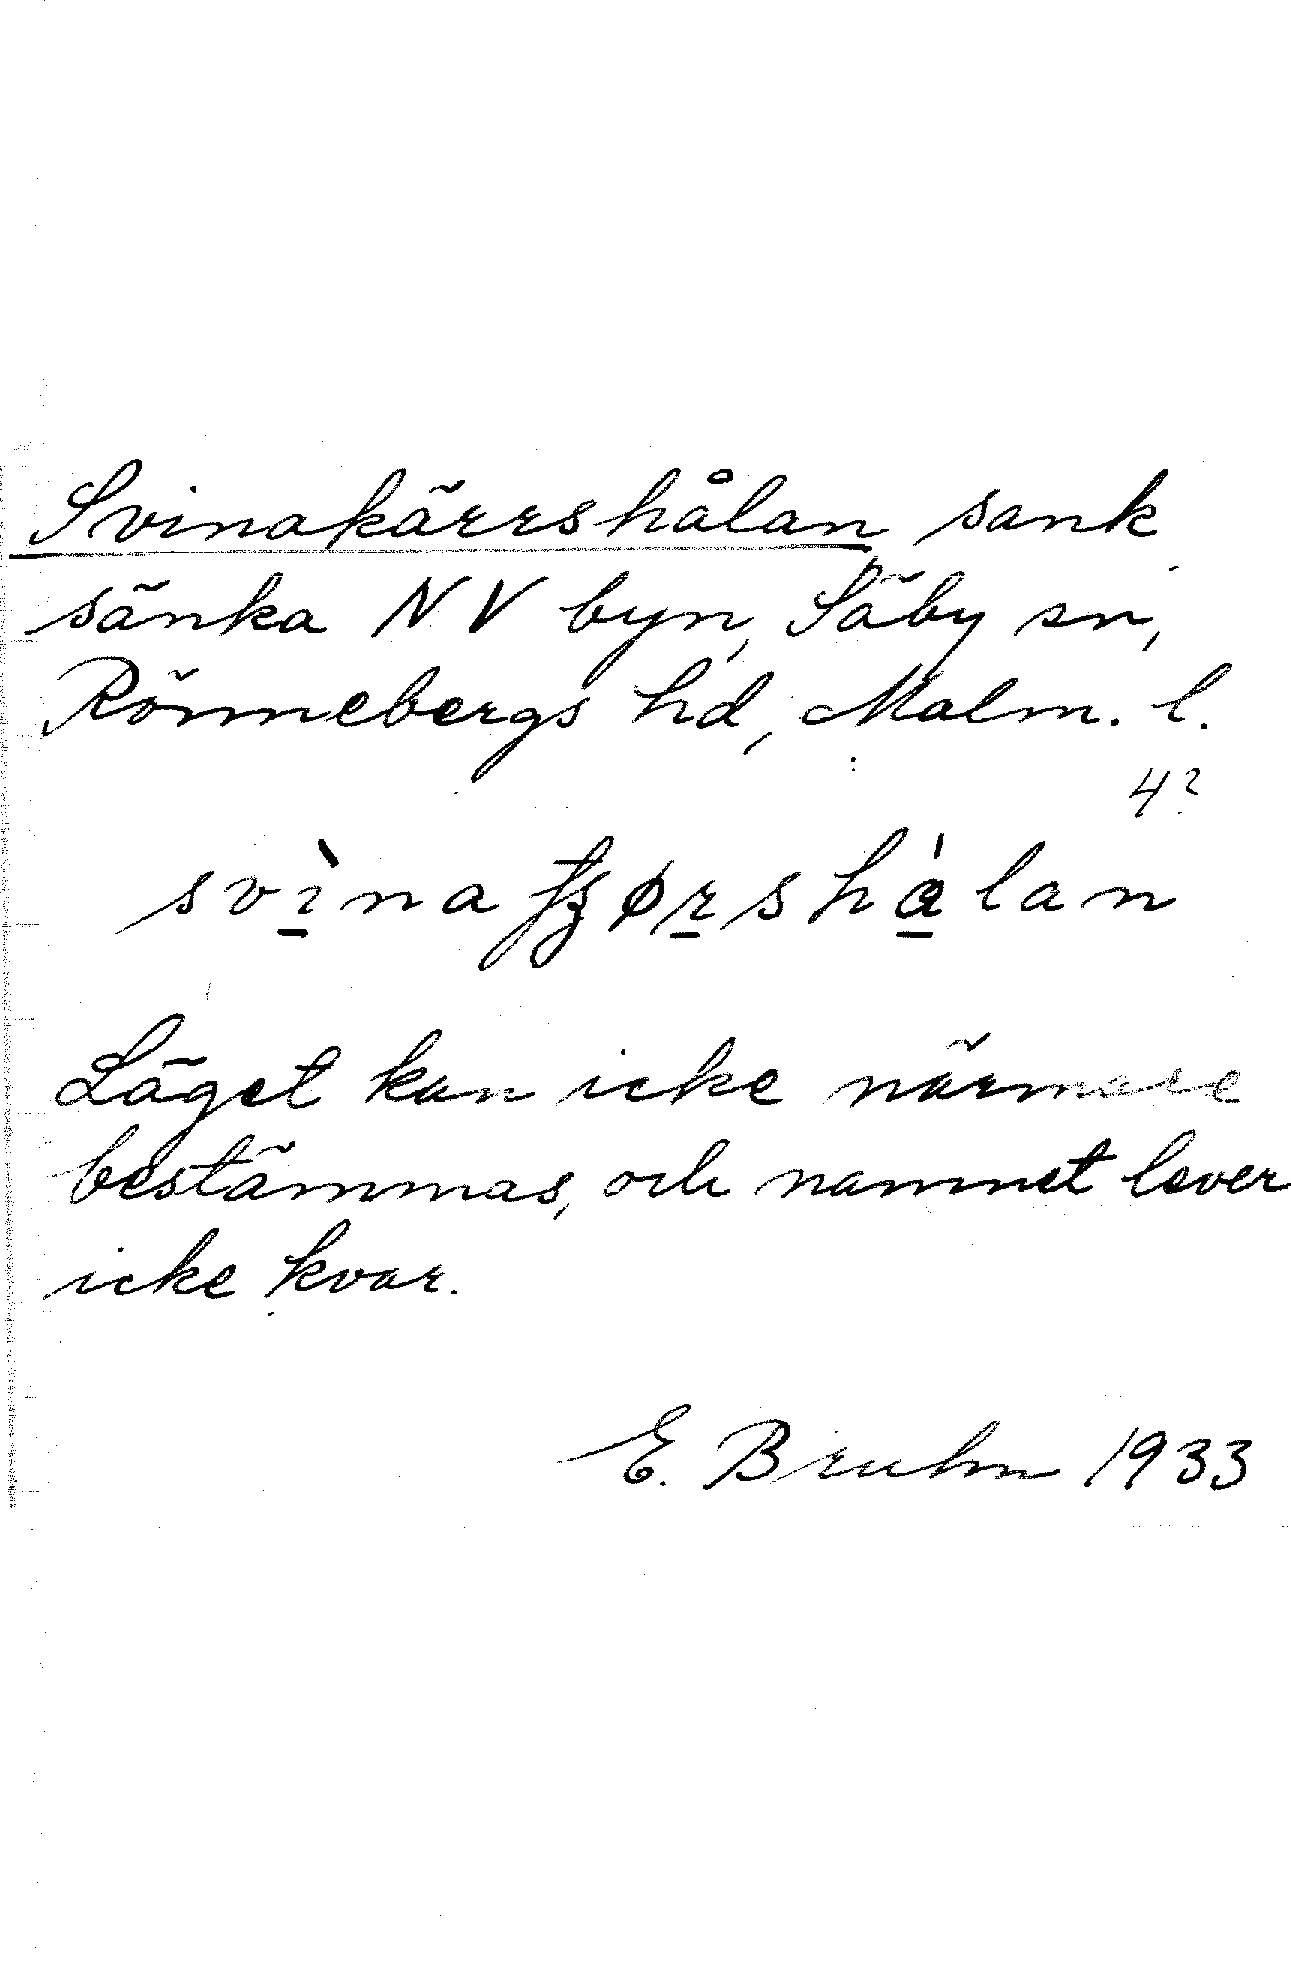 Svinakärrshålan sank
sänka NV byn, Säby sn,
Rönnebergs hd, Malm. l.
4?
Läget kan icke närmare
bestämmas, och namnet lever
icke kvar.
E. Bruhn 1933